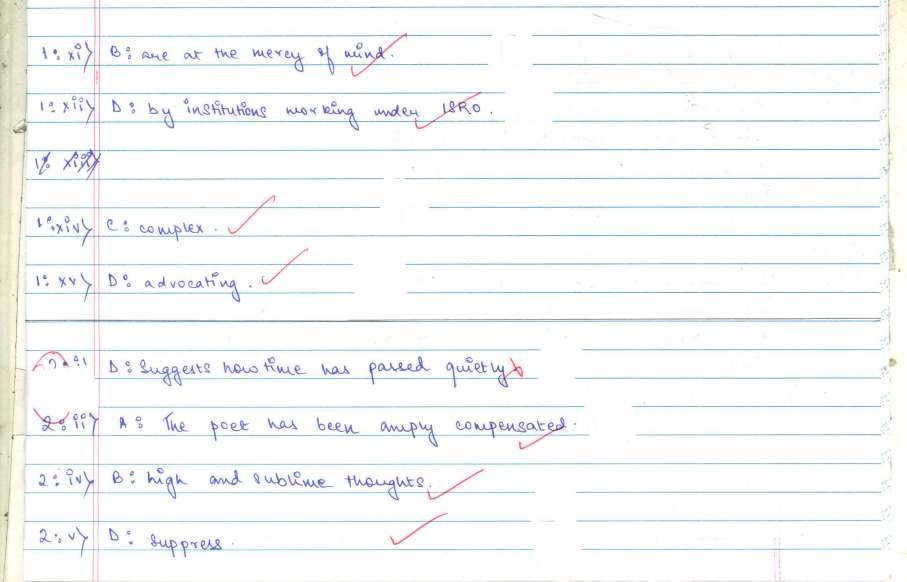 1: xi) B: are at the mercy of mind.
1: xii) D: by institutions working under ISRO.
1: xiii)
1: xiv) C: complex.
1: xv) D: advocating.
D: Suggests how time has passed quietly
2: ii) A: The poet has been amply compensated.
2: iv) B: high and sublime thoughts.
2: v) D: suppress.